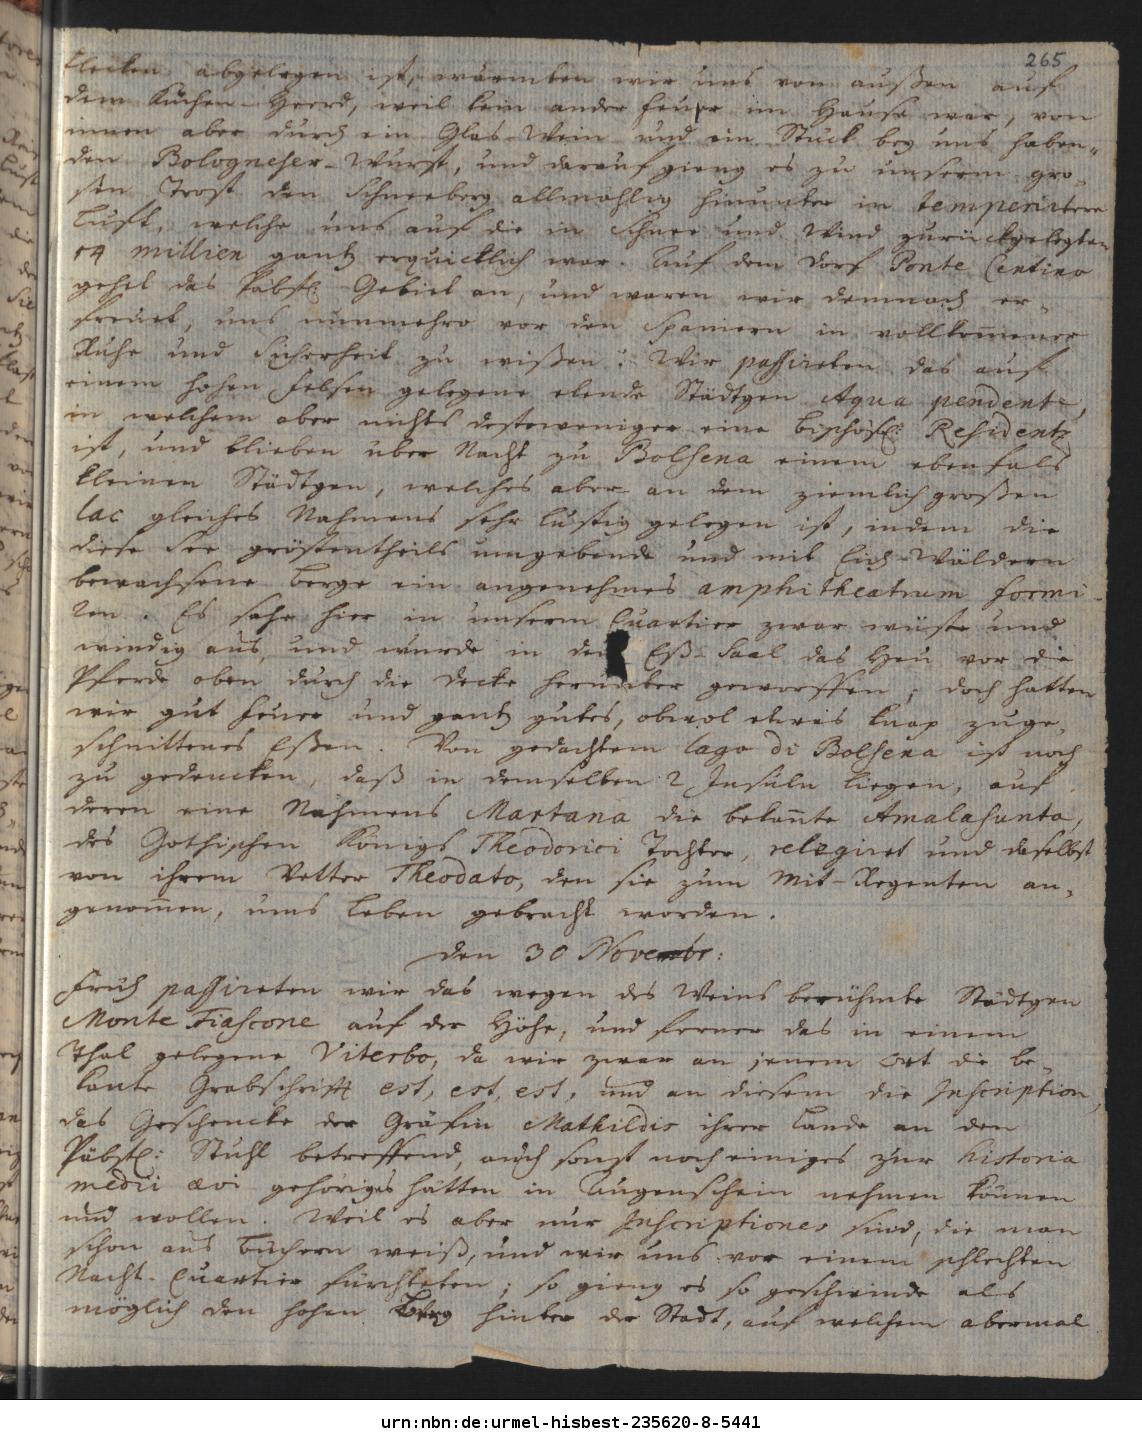 265
Flecken abgelegen ist, wärmten wir uns von außen auf
dem Küchen-Heerd, weil kein ander Feuer im Hause war, von
innen aber durch ein Glas Wein und ein Stück bey uns haben-
den Bologneser-Wurst, und darauf gieng es zu unserm gro-
ßen Trost den Schneeberg allmählig hinunter in temperirtere
Luft, welche uns auf die in Schnee und Wind zurückgelegten
14 millien gantz erquicklich war. Auf dem Dorf Ponte Centino
gehet das Päbstl: Gebiet an, und waren wir demnach er-
freuet, uns nunmehro vor den Spaniern in vollkommener
Ruhe und Sicherheit zu wißen: Wir passireten das auf
einem hohen Felsen gelegene elende Städtgen Aqua pendente,
in welchem aber nichts destoweniger eine Bischöfl: Residentz
ist, und blieben über Nacht zu Bolsena einem ebenfals
kleinen Städtgen, welches aber an dem ziemlich großen
lac gleiches Nahmens sehr lustig gelegen ist, indem die
diese See gröstentheils umgebende und mit Eich-Wäldern
bewachsene Berge ein angenehmes amphitheatrum formi-
ren. Es sahe hier in unserm Quartier zwar wüste und
windig aus, und wurde in den Eß-Saal das Heu vor die
Pferde oben durch die Decke herunter geworffen; doch hatten
wir gut Feuer und gantz gutes, obwol etwas knap zuge-
schnittenes Eßen. Von gedachtem lago di Bolsena ist noch
zu gedencken, daß in demselben 2 Insuln liegen, auf
deren eine Nahmens Martana die bekante Amalasunta,
des Gothischen Königs Theodorici Tochter, relegiret und daselbst
von ihrem Vetter Theodato, den sie zum Mit-Regenten an-
genommen, ums Leben gebracht worden.
den 30 Novembr:
Früh passireten wir das wegen des Weins berühmte Städtgen
Monte Fiascone auf der Höhe, und ferner das in einem
Thal gelegene Viterbo, da wir zwar an jenem Ort die be-
kante Grabschrifft est, est, est, und an diesem die Inscription,
das Geschencke der Gräfin Mathildis ihrer Lande an den
Päbstl: Stuhl betreffend, auch sonst noch einiges zur historia
medii ævi gehöriges hätten in Augenschein nehmen können
und wollen. Weil es aber nur Inscriptiones sind, die man
schon aus Büchern weiß, und wir uns vor einem schlechten
Nacht-Quartier fürchteten; so gieng es so geschwinde als
möglich den hohen Berg hinter der Stadt, auf welchem abermal
urn:nbn:de:urmel-hisbest-235620-8-5441